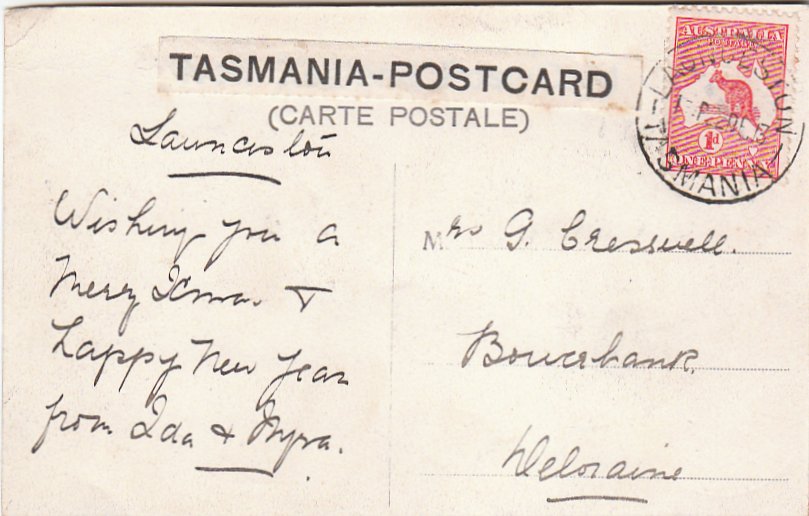 TASMANIA-POSTCARD
(CARTE POSTALE)
AUSTRALIA
POSTAGE
1d
ONE PENNY
LAUNCESTON
TASMANIA
Launceston
Wishing you a
Merry Xmas. &
Happy New Year
from Ida & Myra.
Mrs G. Cresswell.
Bowerbank.
Deloraine